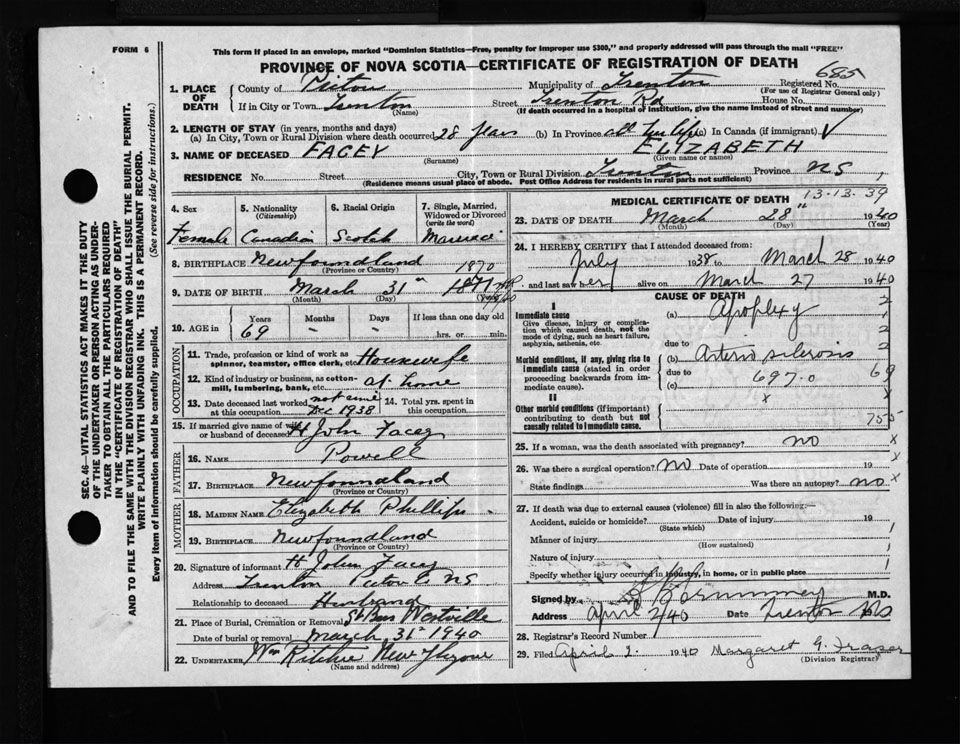 FORM 6
This form if placed in an envelope, marked "Dominion Statistics—Free, penalty for improper use $300," and properly addressed will pass through the mail "FREE"
PROVINCE OF NOVA SCOTIA—CERTIFICATE OF REGISTRATION OF DEATH
685
SEC. 46—VITAL STATISTICS ACT MAKES IT THE DUTY
OF THE UNDERTAKER OR PERSON ACTING AS UNDER-
TAKER TO OBTAIN ALL THE PARTICULARS REQUIRED
IN THE "CERTIFICATE OF REGISTRATION OF DEATH"
AND TO FILE THE SAME WITH THE DIVISION REGISTRAR WHO SHALL ISSUE THE BURIAL PERMIT.
WRITE PLAINLY WITH UNFADING INK. THIS IS A PERMANENT RECORD.
Every item of information should be carefully supplied. (See reverse side for instructions.)
1. PLACE OF DEATH County of Pictou Municipality of Trenton Registered No.
(For use of Registrar General only)
If in City or Town Trenton Street Trenton Rd House No.
(Name) (If death occurred in a hospital or institution, give the name instead of street and number)
2. LENGTH OF STAY (in years, months and days)
(a) In City, Town or Rural Division where death occurred 28 years (b) In Province all her life (c) In Canada (if immigrant)
3. NAME OF DECEASED FACEY ELIZABETH
(Surname) (Given name or names)
RESIDENCE No. Street City, Town or Rural Division Trenton Province NS
(Residence means usual place of abode. Post Office Address for residents in rural parts not sufficient)
4. Sex Female
5. Nationality (Citizenship) Canadian
6. Racial Origin Scotch
7. Single, Married, Widowed or Divorced (write the word) Married
8. BIRTHPLACE Newfoundland
(Province or Country)
1870
9. DATE OF BIRTH March 31" 1871
(Month) (Day) (Year)
10. AGE in Years Months Days If less than one day old
69 - - hrs. or min.
OCCUPATION
11. Trade, profession or kind of work as spinner, teamster, office clerk, etc. Housewife
12. Kind of industry or business, as cotton-mill, lumbering, bank, etc. at home
13. Date deceased last worked at this occupation Dec 1938
14. Total yrs. spent in this occupation
15. If married give name of wife or husband of deceased H John Facey
FATHER
16. NAME Powell
17. BIRTHPLACE Newfoundland
(Province or Country)
MOTHER
18. MAIDEN NAME Elizabeth Phillips
19. BIRTHPLACE Newfoundland
(Province or Country)
20. Signature of informant H John Facey
Address Trenton Pictou C NS
Relationship to deceased Husband
21. Place of Burial, Cremation or Removal Westville
Date of burial or removal March 31st 1940
22. UNDERTAKER Wm Ritchie New Glasgow
MEDICAL CERTIFICATE OF DEATH
13.13.39
23. DATE OF DEATH March 28" 1940
(Month) (Day) (Year)
24. I HEREBY CERTIFY that I attended deceased from:
July 1938 to March 28 1940
and last saw her alive on March 27 1940
CAUSE OF DEATH
I
Immediate cause
Give disease, injury or complication which caused death, not the mode of dying, such as heart failure, asphyxia, asthenia, etc.
(a) Apoplexy
due to
Morbid conditions, if any, giving rise to immediate cause (stated in order proceeding backwards from immediate cause).
(b) Arterio sclerosis
due to
(c) 697.0
II
Other morbid conditions (if important) contributing to death but not causally related to immediate cause.
2
2
69
755
25. If a woman, was the death associated with pregnancy? no x
26. Was there a surgical operation? no Date of operation 19 x
State findings Was there an autopsy? no x
27. If death was due to external causes (violence) fill in also the following:—
Accident, suicide or homicide? Date of injury 19
(State which)
Manner of injury
(How sustained)
Nature of injury
Specify whether injury occurred in industry, in home, or in public place
Signed by M.D.
Address April 2/40 Date Trenton NS
28. Registrar's Record Number
29. Filed April 2. 1940 Margaret G. Fraser
(Division Registrar)